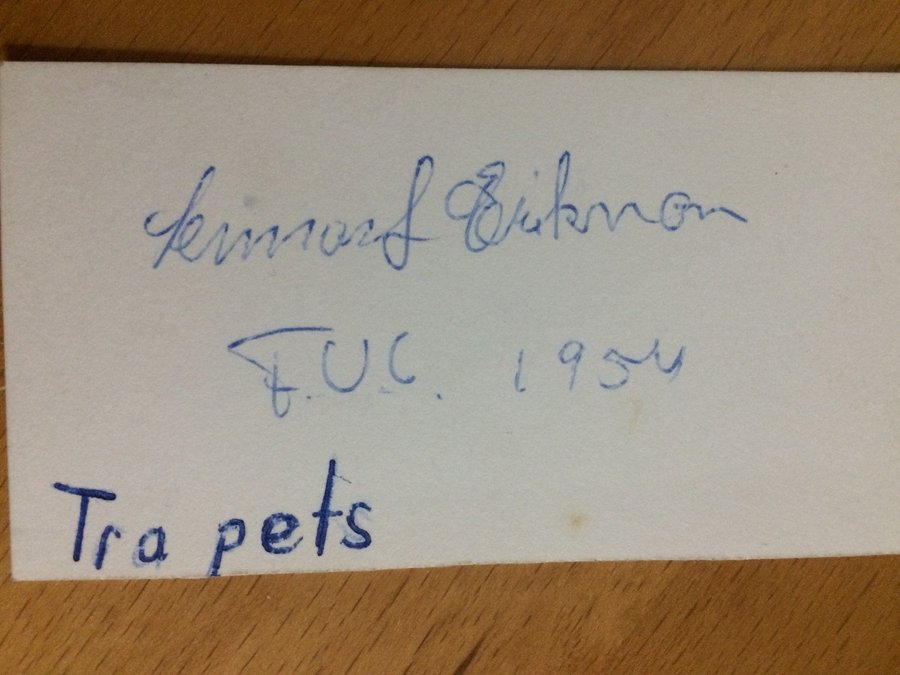 Lennart Eriksson
F.U.C. 1954
Tra pets